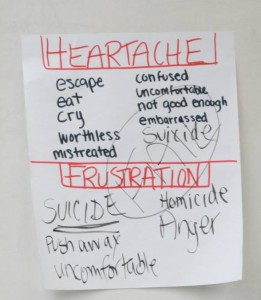 HEARTACHE
escape confused
eat uncomfortable
cry not good enough
worthless embarrassed
mistreated Suixide
FRUSTRATION
SUICIDE Homicide
Push away Anger
uncomfortable